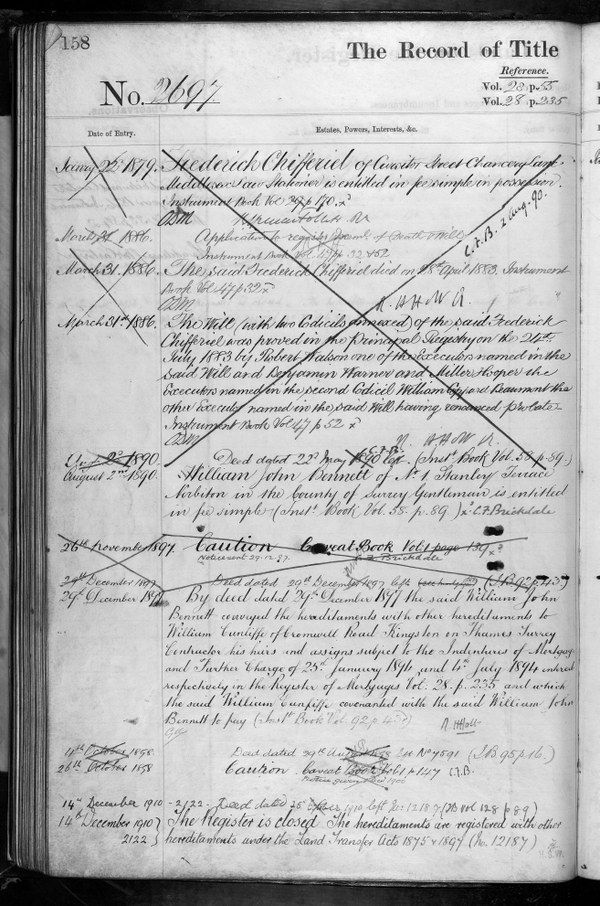 158
The Record of Title
Reference.
No. 2697.
Vol. 28 p. 5
Vol. 28 p. 235
Date of Entry.
Estates, Powers, Interests, &c.
1879. Frederick Chifferiel of Cursitor Street Chancery Lane
Middlesex Law Stationer is entitled in fee simple in possession.
Instrument Book Vol p 170. x
C.F.B. 2 Aug. 90.
1886. Application to register
Instrument Book
March 31. 1886. The said Frederick Chifferiel died on April 1883. Instrument
Book Vol 47 p 32 x
March 31st 1886. The Will (with two Codicils annexed) of the said Frederick
Chifferiel was proved in the Principal Registry on the
July 1883 by Robert Watson one of the Executors named in the
said Will and Benjamin Warner and Miller Hooper the
Executors named in the second Codicil William Beaumont the
other Executor named in the said Will having renounced probate
Instrument Book Vol 47 p 52 x
1890. Deed dated 22nd May 1890 left. (Inst. Book Vol. 58 p. 89.)
August 2nd 1890. William John Bennett of No. 1 Stanley Terrace
Norbiton in the County of Surrey Gentleman is entitled
in fee simple (Inst. Book Vol. 58 p. 89.) x C.F. Brickdale
26th November 1897. Caution Caveat Book Vol. 1 page 139 x
C.F. Brickdale
29th December 1897 Deed dated 29th December 1897 left
29th December 1897 By deed dated 29th December 1897 the said William John
Bennett conveyed the hereditaments with other hereditaments to
William Cunliffe of Cromwell Road Kingston on Thames Surrey
Contractor his heirs and assigns subject to the Indentures of Mortgage
and Further Charge of 25th January 1894 and 4th July 1894 entered
respectively in the Register of Mortgages Vol. 28. p. 235 and which
the said William Cunliffe covenanted with the said William John
Bennett to pay (Inst. Book Vol. 92 p. 45)
October 1898 Deed dated 29th 1898 No 7591 (I.B. 95 p. 16.)
26th October 1898 Caution Caveat Book Vol. 1 p 147 C.F.B.
14th December 1910 - 2122 - Deed dated 25 1910 left for 12187 (IB vol 128 p 89)
14th December 1910 } The Register is closed. The hereditaments are registered with other
2122 } hereditaments under the Land Transfer Acts 1875 & 1897 (No. 12187)